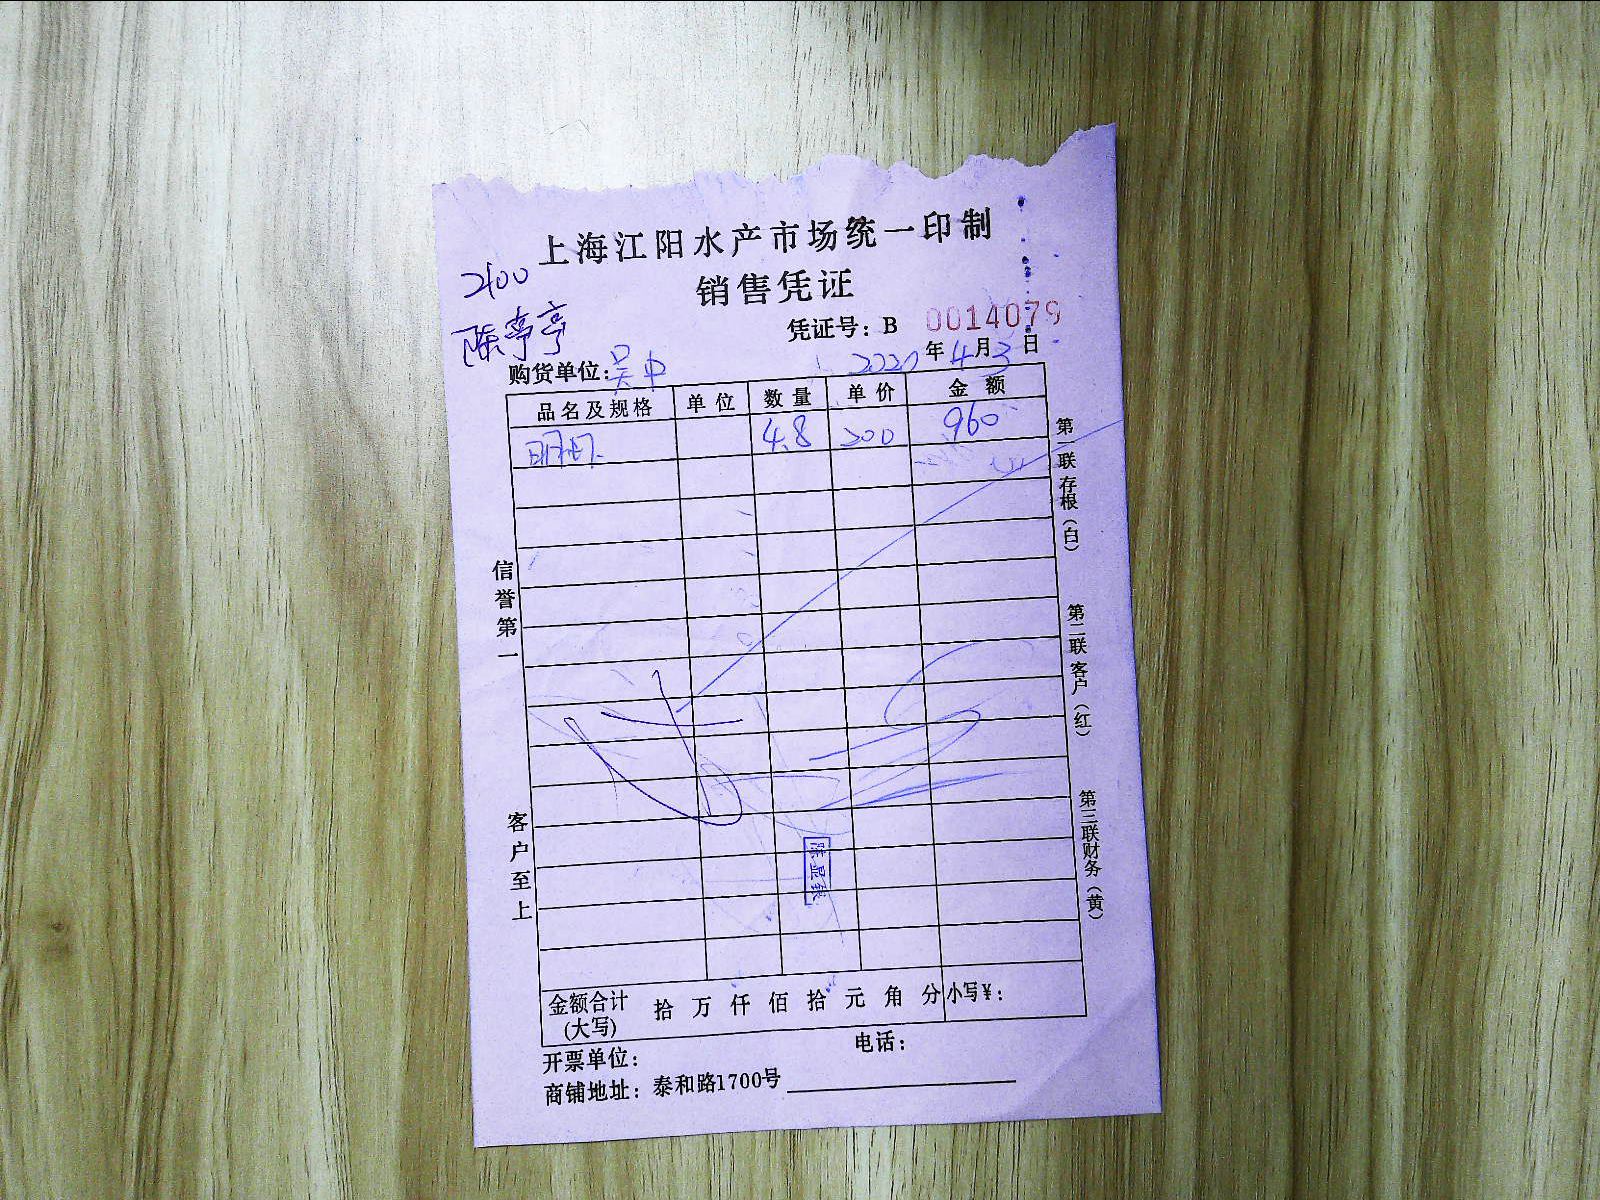 上海江阳水产市场统一印制
销售凭证
2100
陈亭亭
凭证号：B 0014079
2020年4月3日
购货单位：吴中
品名及规格 单位 数量 单价 金额
4.8 200 960
信誉第一
客户至上
第一联存根（白）
第二联客户（红）
第三联财务（黄）
金额合计(大写) 拾 万 仟 佰 拾 元 角 分 小写¥：
开票单位： 电话：
商铺地址：泰和路1700号